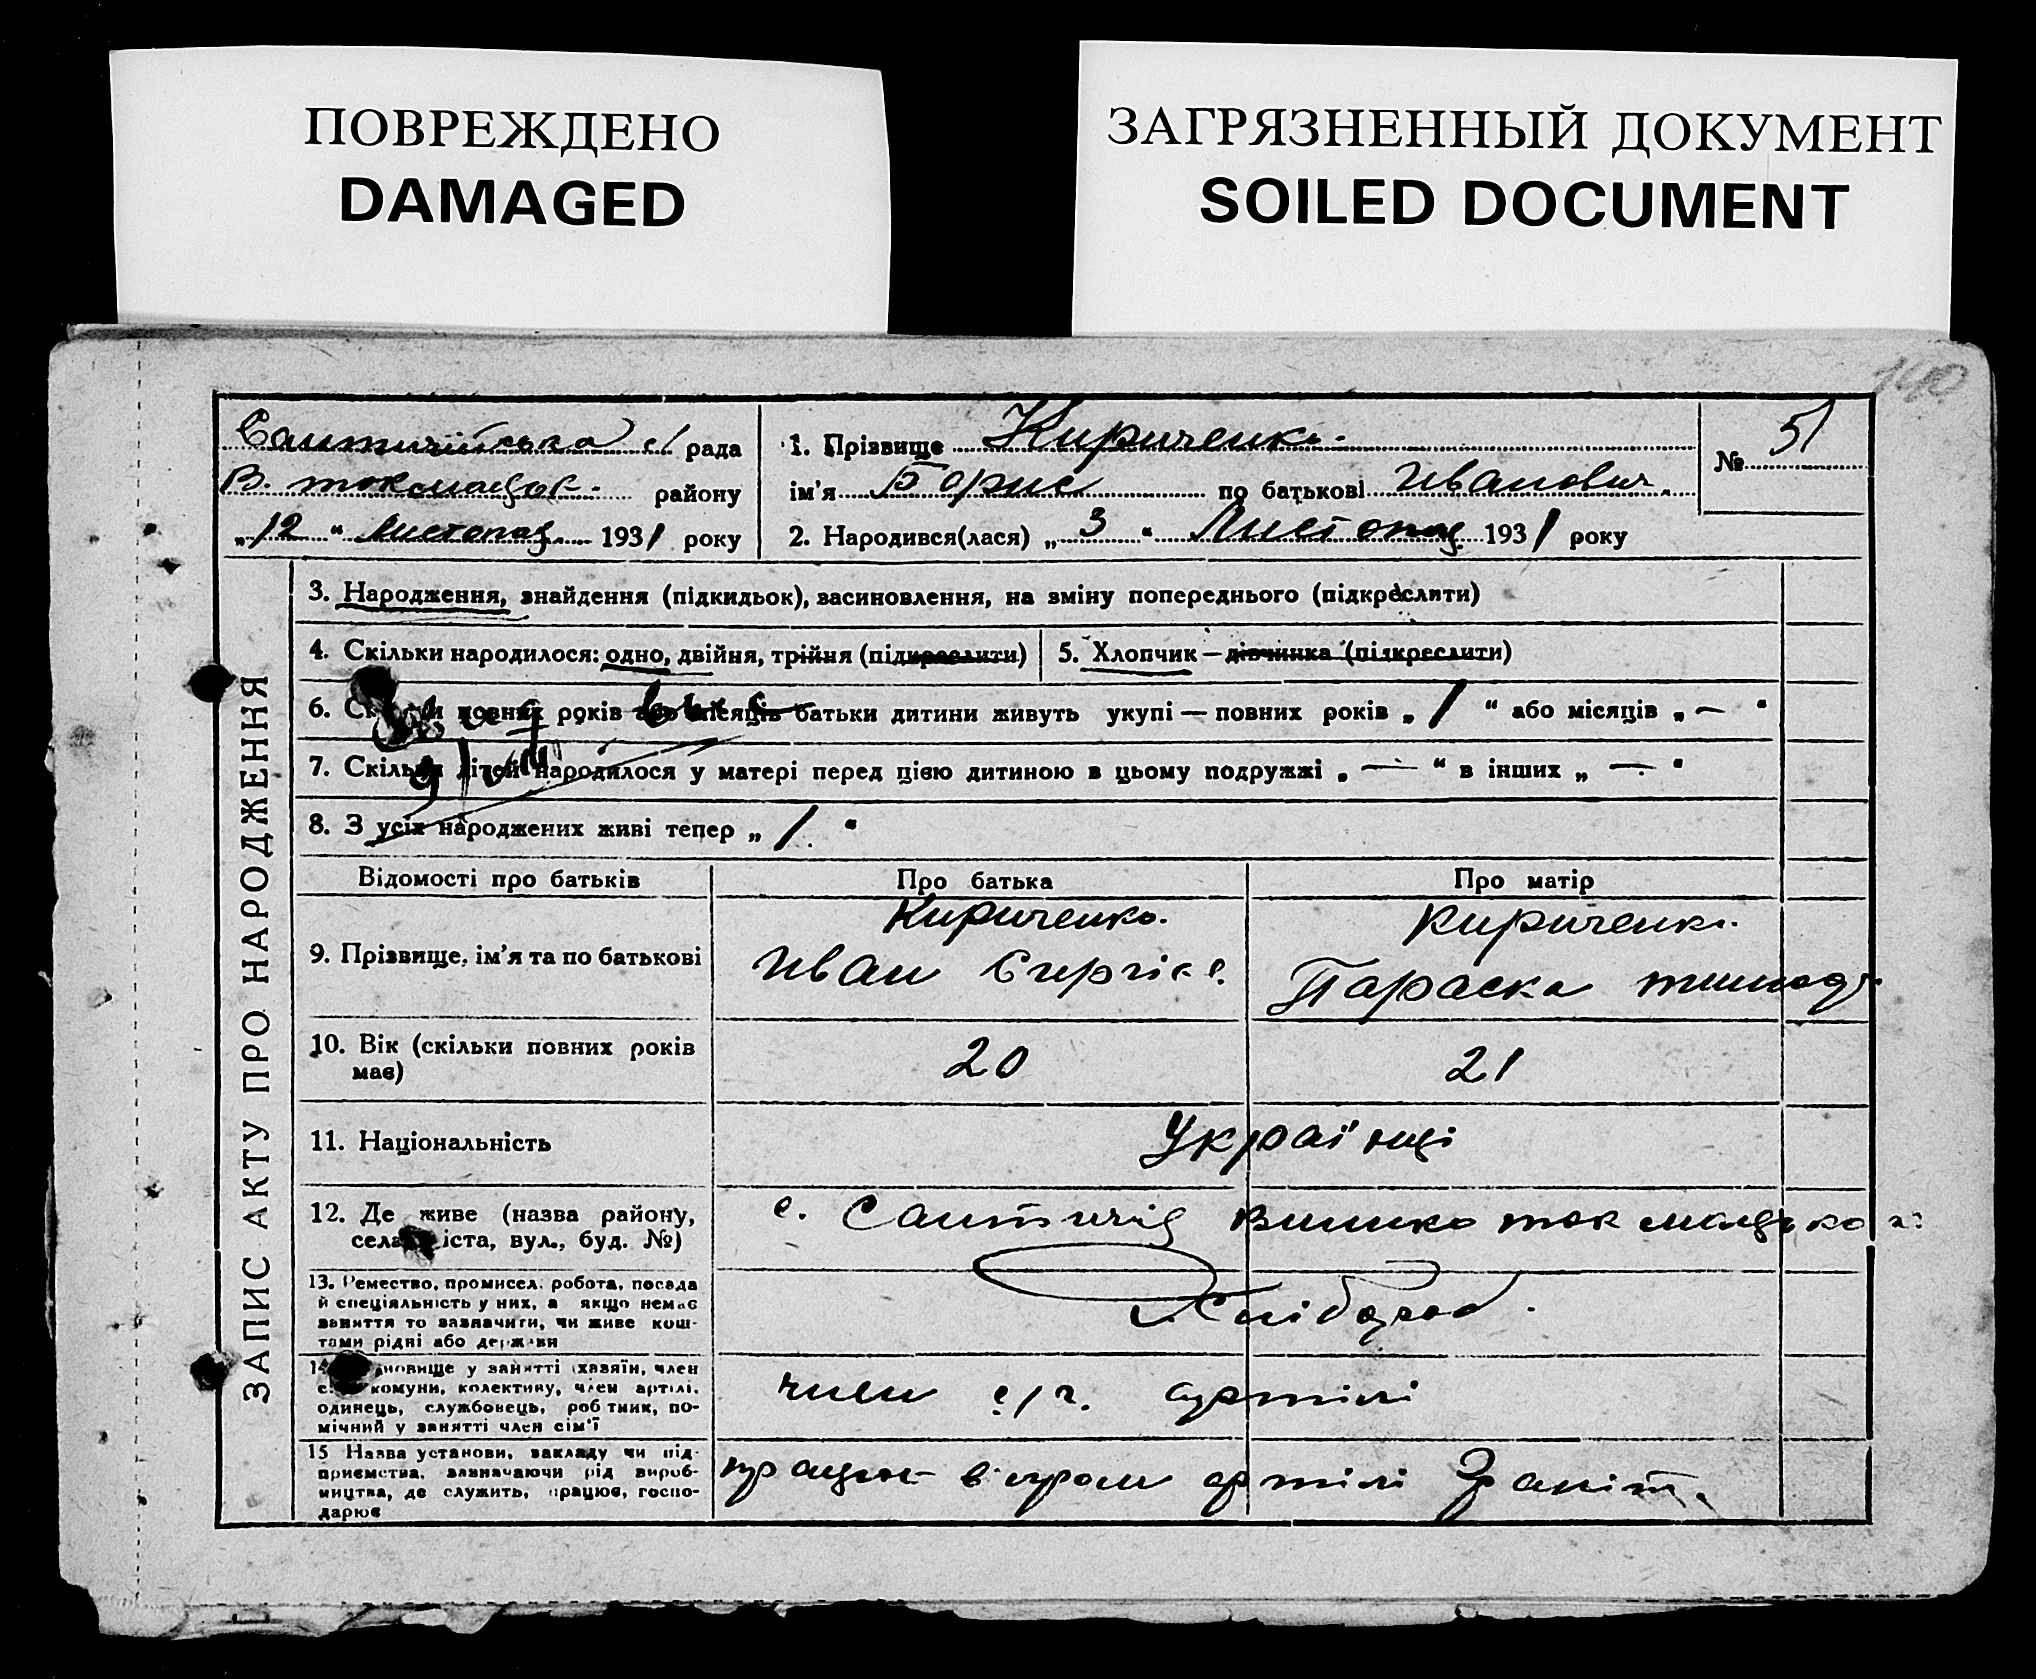 ПОВРЕЖДЕНО
DAMAGED
ЗАГРЯЗНЕННЫЙ ДОКУМЕНТ
SOILED DOCUMENT
рада
В. токмацьк. району
„ 12 “ Листопад. 1931 року
1. Прізвище Кириченко.
ім'я Борис по батькові Иванович.
2. Народився(лася) „ 3 “ Листопад 1931 року
№ 51
ЗАПИС АКТУ ПРО НАРОДЖЕННЯ
3. Народження, знайдення (підкидьок), засиновлення, на зміну попереднього (підкреслити)
4. Скільки народилося: одно, двійня, трійня (підкреслити)
5. Хлопчик — дівчинка (підкреслити)
6. повних років або місяців батьки дитини живуть укупі — повних років „ 1 “ або місяців „ — “
7. Скільки дітей народилося у матері перед цією дитиною в цьому подружжі „ — “ в інших „ — “
8. З усіх народжених живі тепер „ 1. “
Відомості про батьків
Про батька
Про матір
9. Прізвище, ім'я та по батькові
Кириченко.
Иван
Кириченк.
Параска
10. Вік (скільки повних років
має)
20
21
11. Національність
Українці
12. Де живе (назва району,
села іста, вул., буд. №)
с.
13. Ремество, промисел, робота, посада
й спеціяльність у них, а якщо немає
заняття то зазначити, чи живе кош-
тами рідні або держави
Хлібороб.
14. новище у занятті (хазяїн, член
комуни, колективу, член артілі,
одинець, службовець, робітник, по-
мічний у занятті член сім'ї
член с/г. артілі
15 Назва установи, закладу чи під-
приємства, зазначаючи рід вироб-
ництва, де служить, працює, госпо-
дарює
артілі